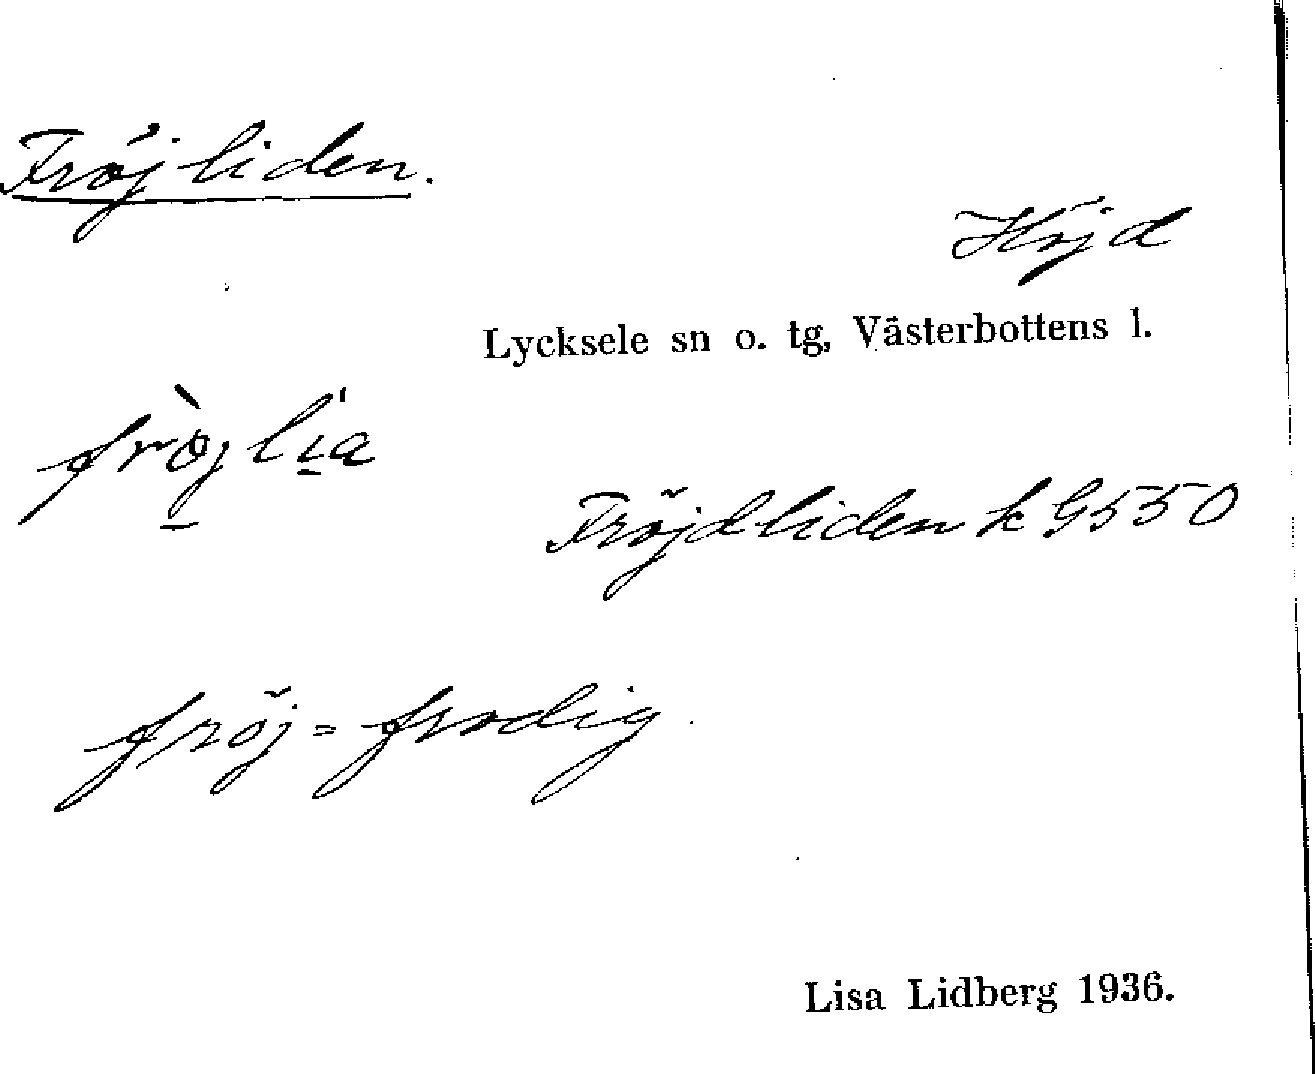 Fröjliden.
Höjd
Lycksele sn o. tg, Västerbottens l.
fröjlia
Fröjdliden k G550
fröj = frodig
Lisa Lidberg 1936.